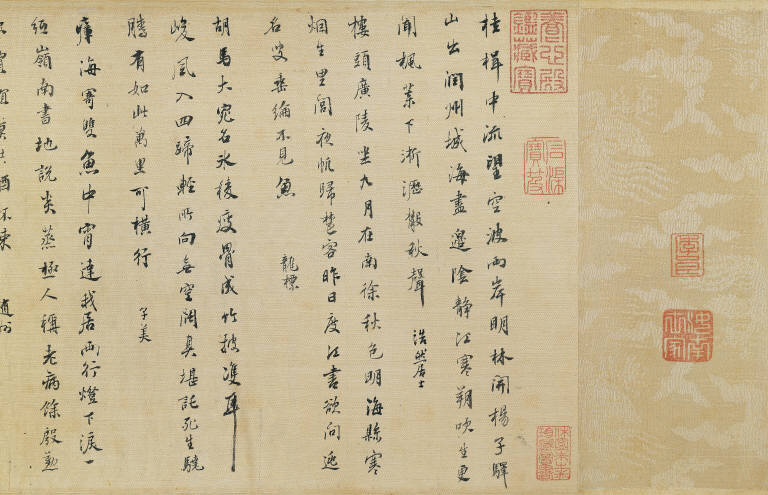 養心殿鑑藏寶
桂楫中流望空波兩岸明林開楊子驛
山出潤州城海盡邊陰靜江寒朔吹生更
聞楓葉下淅瀝秋聲 浩然居士
樓頭廣陵坐九月在南徐秋色明海縣寒
烟生里閭夜帆歸楚客昨日度江書欲問逃
名叟垂綸不見魚 龍標
胡馬大宛名冰稜瘦骨成竹披雙耳
峻風入四蹄輕所向無空闊真堪託死生驍
騰有如此萬里可橫行 子美
瘴海寄雙魚中宵達我居兩行燈下淚一
紙嶺南書地說炎蒸極人稱老病餘殷懃
賈誼莫共酒杯疎 道州